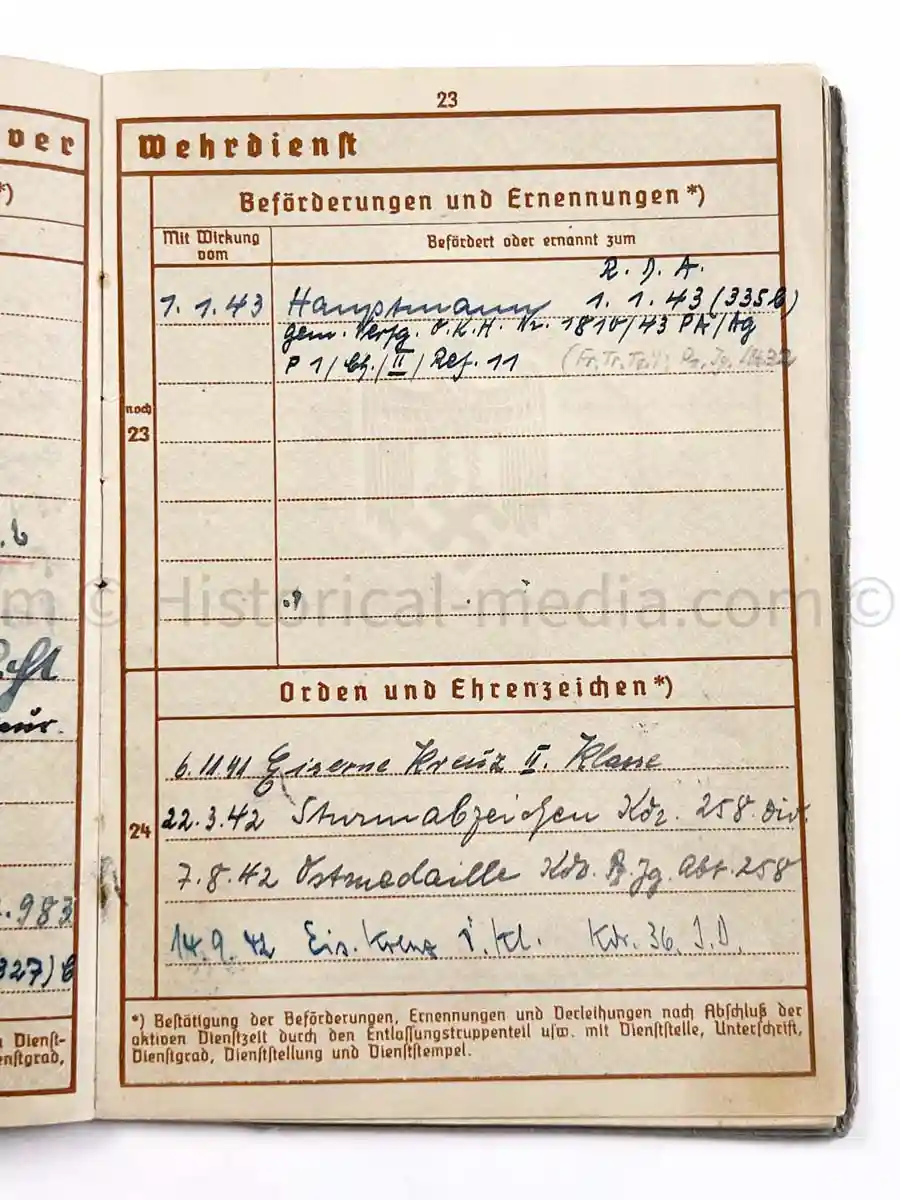 23
ver
Wehrdienst
*)
Beförderungen und Ernennungen *)
Mit Wirkung
vom
Befördert oder ernannt zum
R. D. A.
1.1.43 Hauptmann 1. 1. 43 (335b)
gem. Verfg. O.K.H. Nr. 1810/43 PA/Ag
P 1/ /II/ Ref. 11
noch
23
m © Historical-media.com ©
Orden und Ehrenzeichen *)
24
6.11.41 Eiserne Kreuz II. Klasse
22.3.42 Sturmabzeichen Kdr. 258. Div.
7.8.42 Ostmedaille Kdr. Pz. Jg. Abt. 258
14.9.42 Eis. Kreuz I. Kl. Kdr. 36. I.D.
.983
327)
*) Bestätigung der Beförderungen, Ernennungen und Verleihungen nach Abschluß der
aktiven Dienstzeit durch den Entlassungstruppenteil usw. mit Dienststelle, Unterschrift,
Dienstgrad, Dienststellung und Dienststempel.
Dienst-
enstgrad,